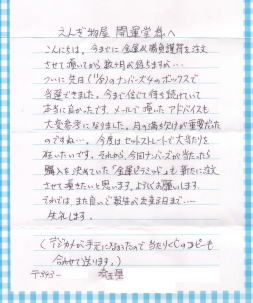 えんぎ物屋 開運堂様へ
こんにちは、今までに金運&勝負護符を注文
させて頂いてから数ヶ月が経ちますが…
ついに先日(1/9)のナンバーズ4のボックスで
当選できました。今まで信じて持ち続けていて
本当に良かったです。メールで頂いたアドバイスも
大変参考になりました。月の満ち欠けが重要だった
のですね…。今度はセットストレートで大当たりを
狙いたいです。それから、今回ナンバーズが当たったら
購入を決めていた「金運ピラミッド」も新たに注文
させて頂きたいと思います。よろしくお願いします。
それでは、また良いご報告が出来る日まで…
失礼します。
(デジカメが手元になかったので当たりくじのコピーも
合わせて送ります。)
埼玉県